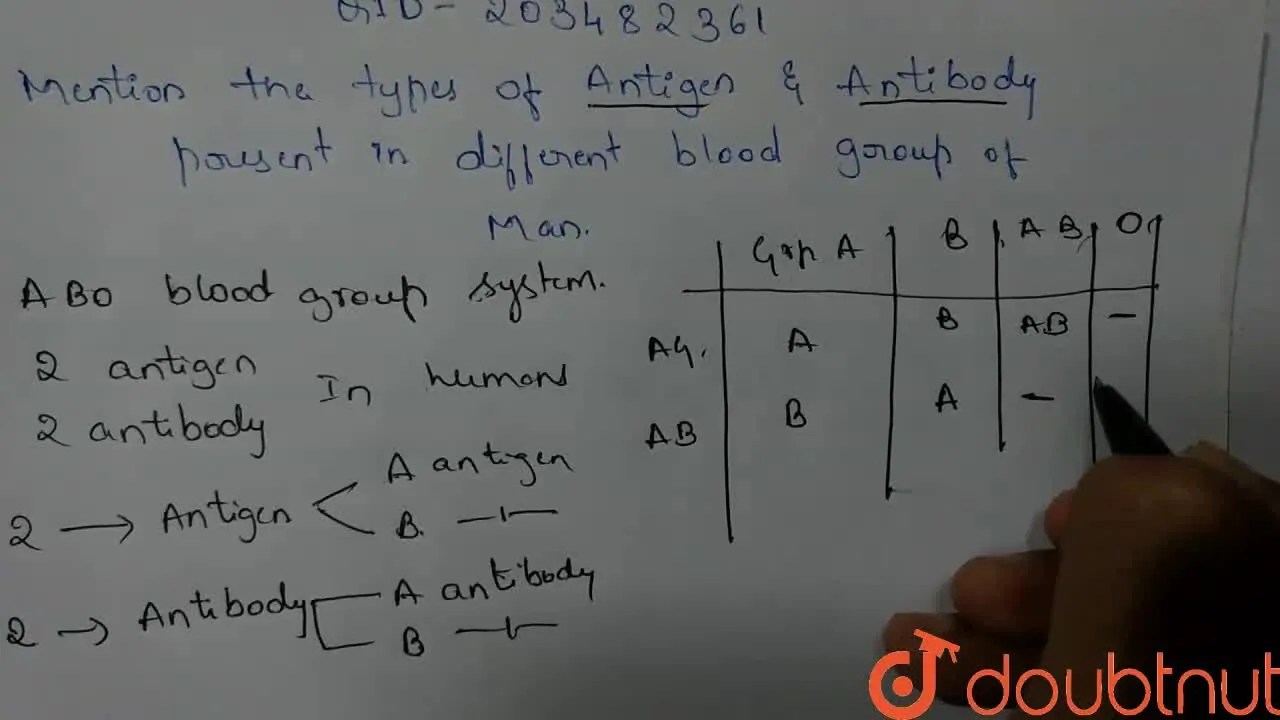 QID - 203482361
Mention the types of Antigen & Antibody
present in different blood group of
Man.
ABO blood group system.
2 antigen
2 antibody
In humans
2 → Antigen
A antigen
B. —〃—
2 → Antibody
A antibody
B —〃—
Grp A B AB O
AG. A B AB —
AB B A —
doubtnut